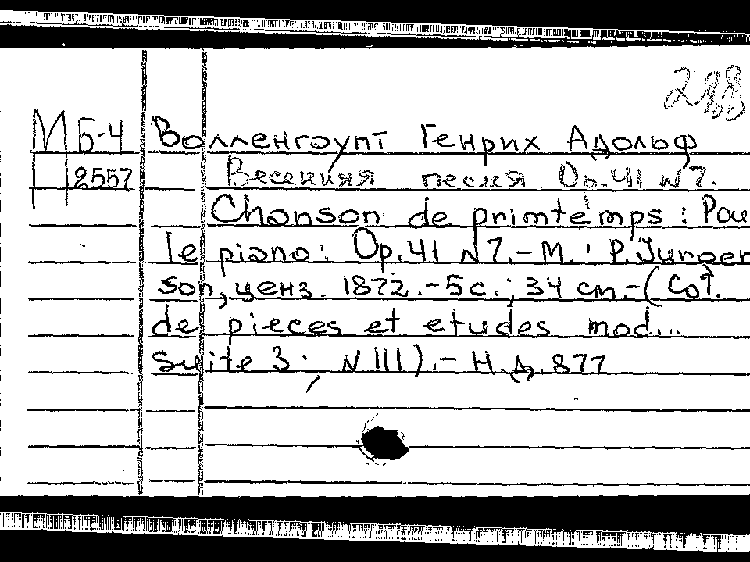 288
М Б-4 Волленгоупт Генрих Адольф
Н 2557 Весенняя песня Op.41 N7.
Chanson de primtemps : Pou
le piano : Op.41 N7.-М. : P.Jurgen
son, ценз. 1872.-5с.; 34 cm.-(Cot.
de pieces et etudes mod...
Suite 3; N III).- Н.д. 877